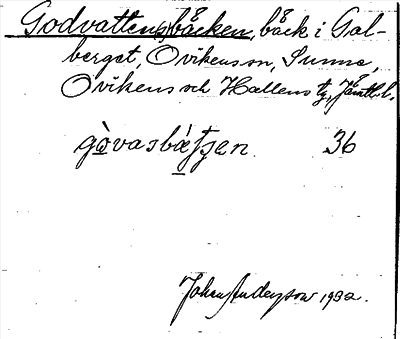 Godvattensbäcken, bäck i Gal-
berget, Ovikens sn, Sunne,
Ovikens och Hallens tg, Jämtl. l.
gòvasbæ̀tʃen 36
Johan Anderson 1932.